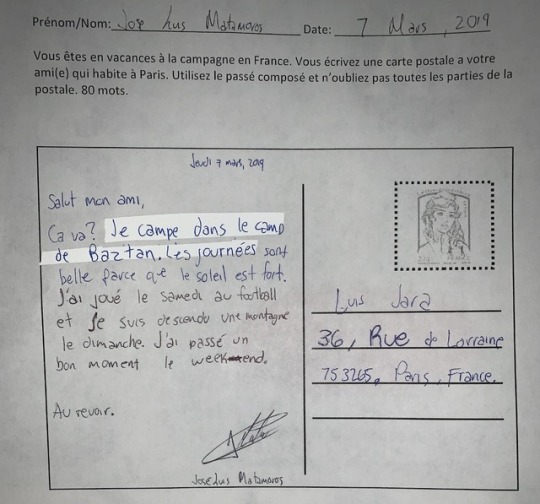 Prénom/Nom: Jose Luis Matamoros Date: 7 Mars, 2019
Vous êtes en vacances à la campagne en France. Vous écrivez une carte postale a votre
ami(e) qui habite à Paris. Utilisez le passé composé et n'oubliez pas toutes les parties de la
postale. 80 mots.
Jeudi 7 mars, 2019
Salut mon ami,
Ca va? Je campe dans le camp
de Baztan. Les journées sont
belle parce que le soleil est fort.
J'ai joué le samedi au football
et je suis descendu une montagne
le dimanche. J'ai passé un
bon moment le week-end.
Au revoir.
Jose Luis Matamoros
Luis Jara
36, Rue de Lorraine
753265, Paris, France.